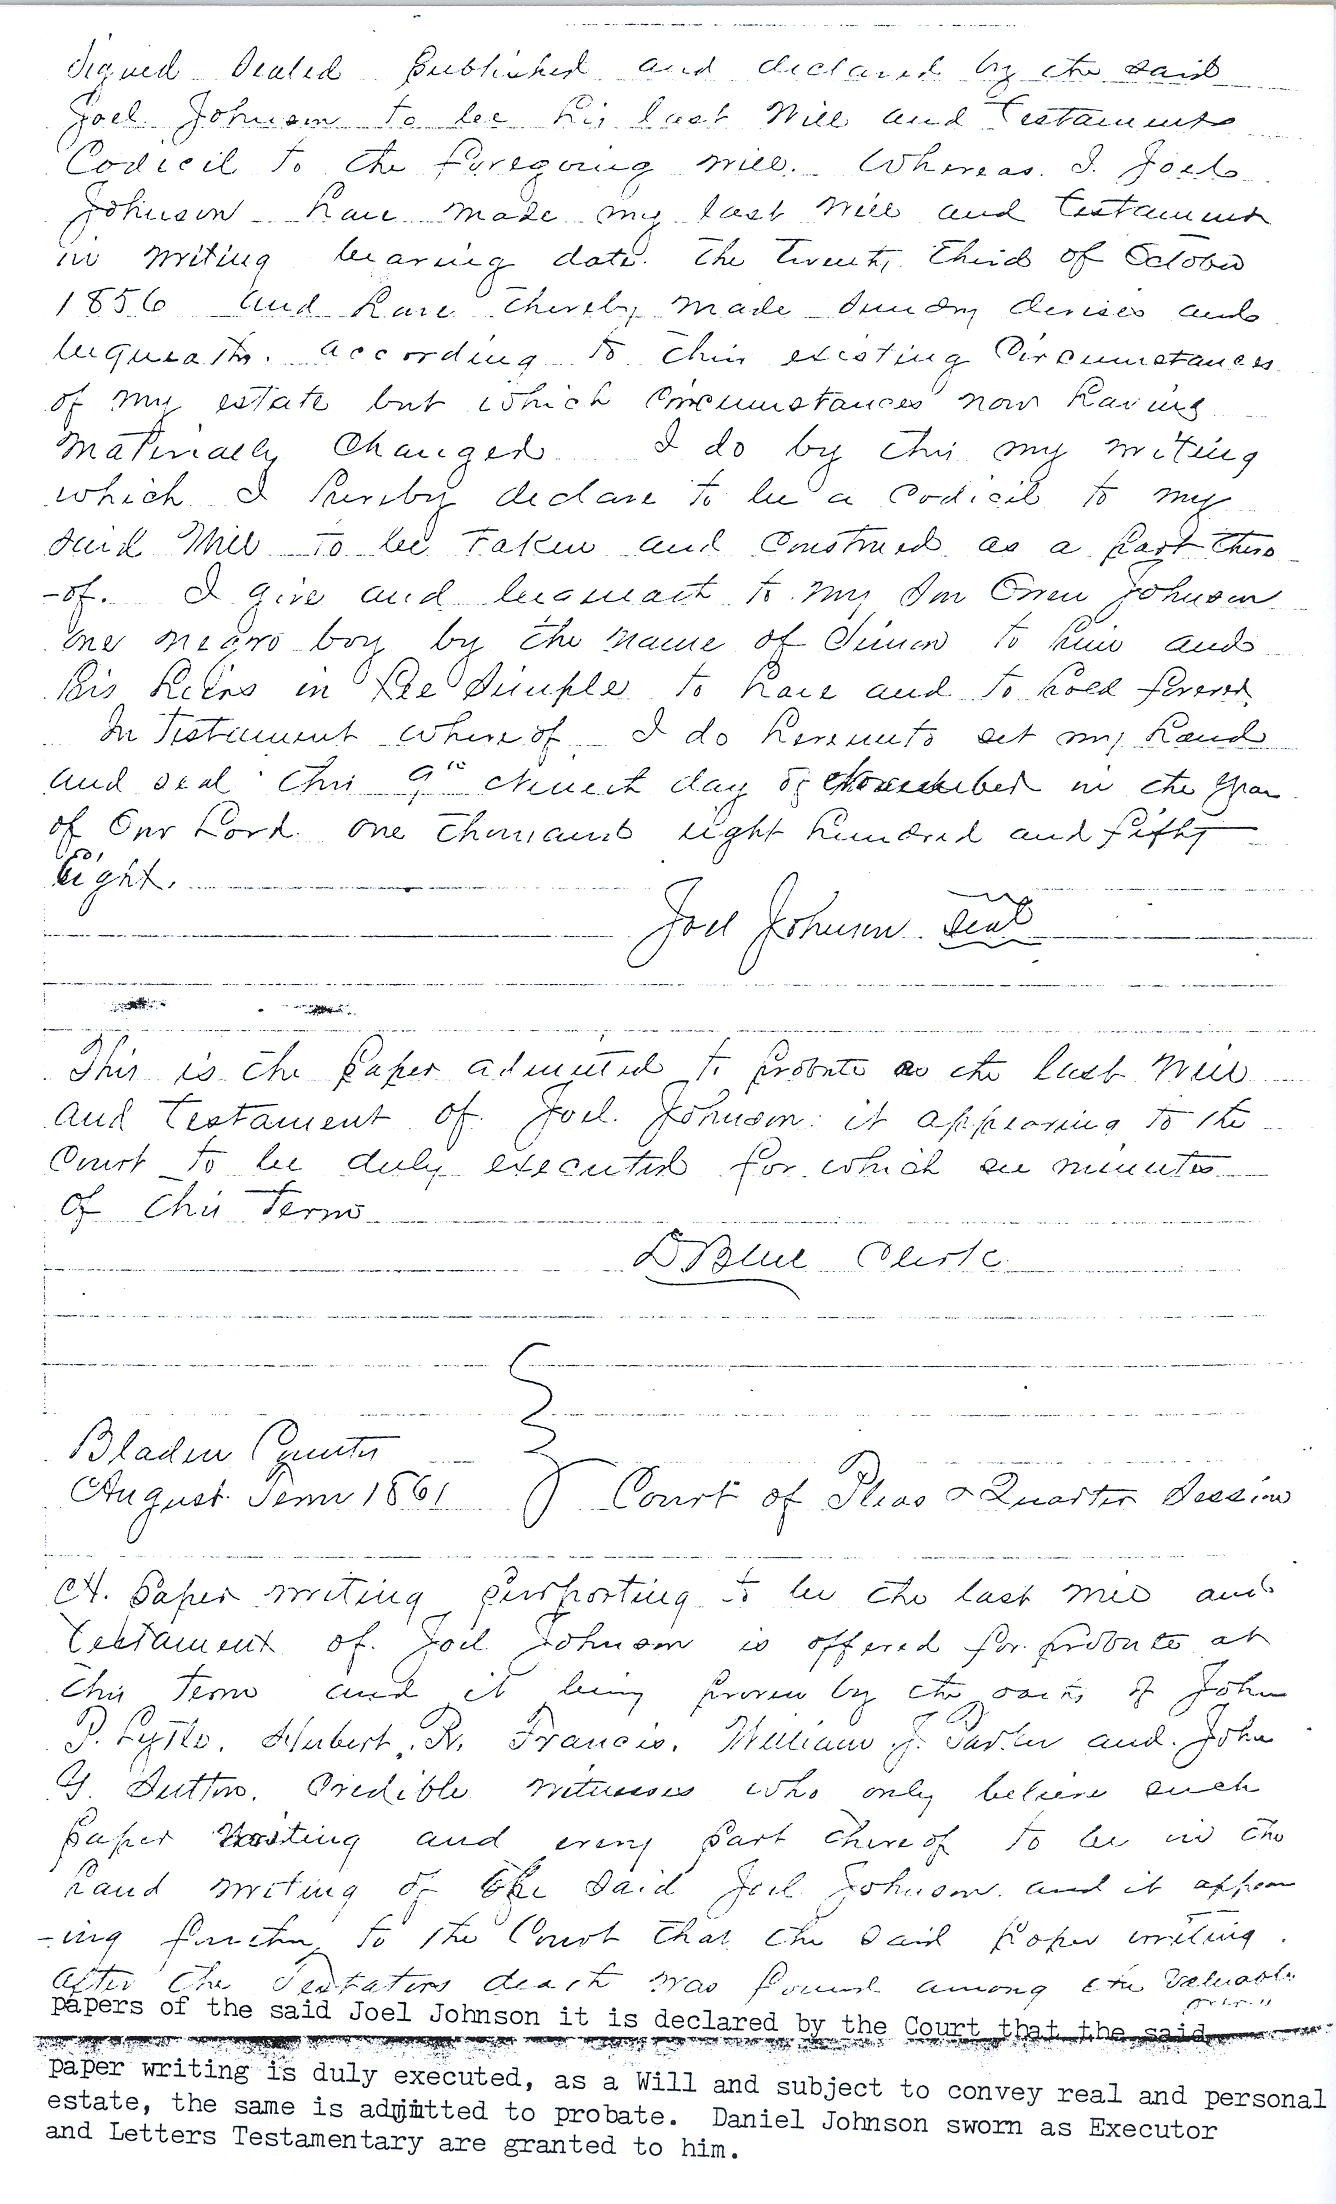 Signed Sealed Published and declared by the said
Joel Johnson to be his last Will and Testament
Codicil to the foregoing will. Whereas I Joel
Johnson have made my last Will and testament
in writing bearing date the twenty third of October
1856 and have thereby made sundry devises and
bequeaths. according to then existing Circumstances
of my estate but which circumstances now having
Materially Changed I do by this my writing
which I hereby declare to be a Codicil to my
said Will to be taken and construed as a part there
-of. I give and bequeath to my Son Owen Johnson
one negro boy by the name of Simon to him and
his heirs in fee Simple to have and to hold forever.
In Testament whereof I do hereunto set my hand
and seal this 9th Nineth day of November in the year
of Our Lord one thousand eight hundred and fifty
Eight.
Joel Johnson Seal
This is the paper admitted to probate as the last Will
and Testament of Joel Johnson it appearing to the
Court to be duly executed for which see minutes
of this Term
D Blue Clerk
Bladen County
August Term 1861 Court of Pleas & Quarter Session
A. paper writing purporting to be the last will and
testament of Joel Johnson is offered for probate at
this term and it being proven by the oaths of John
P. Lytle, Hubert R. Francis, William J. Parker and John
G. Sutton, Credible witnesses who only believe such
paper writing and every part thereof to be in the
hand writing of the said Joel Johnson and it appear
-ing further to the Court that the said paper writing
after the Testators death was found among the valuable
papers of the said Joel Johnson it is declared by the Court that the said
paper writing is duly executed, as a Will and subject to convey real and personal
estate, the same is admitted to probate. Daniel Johnson sworn as Executor
and Letters Testamentary are granted to him.